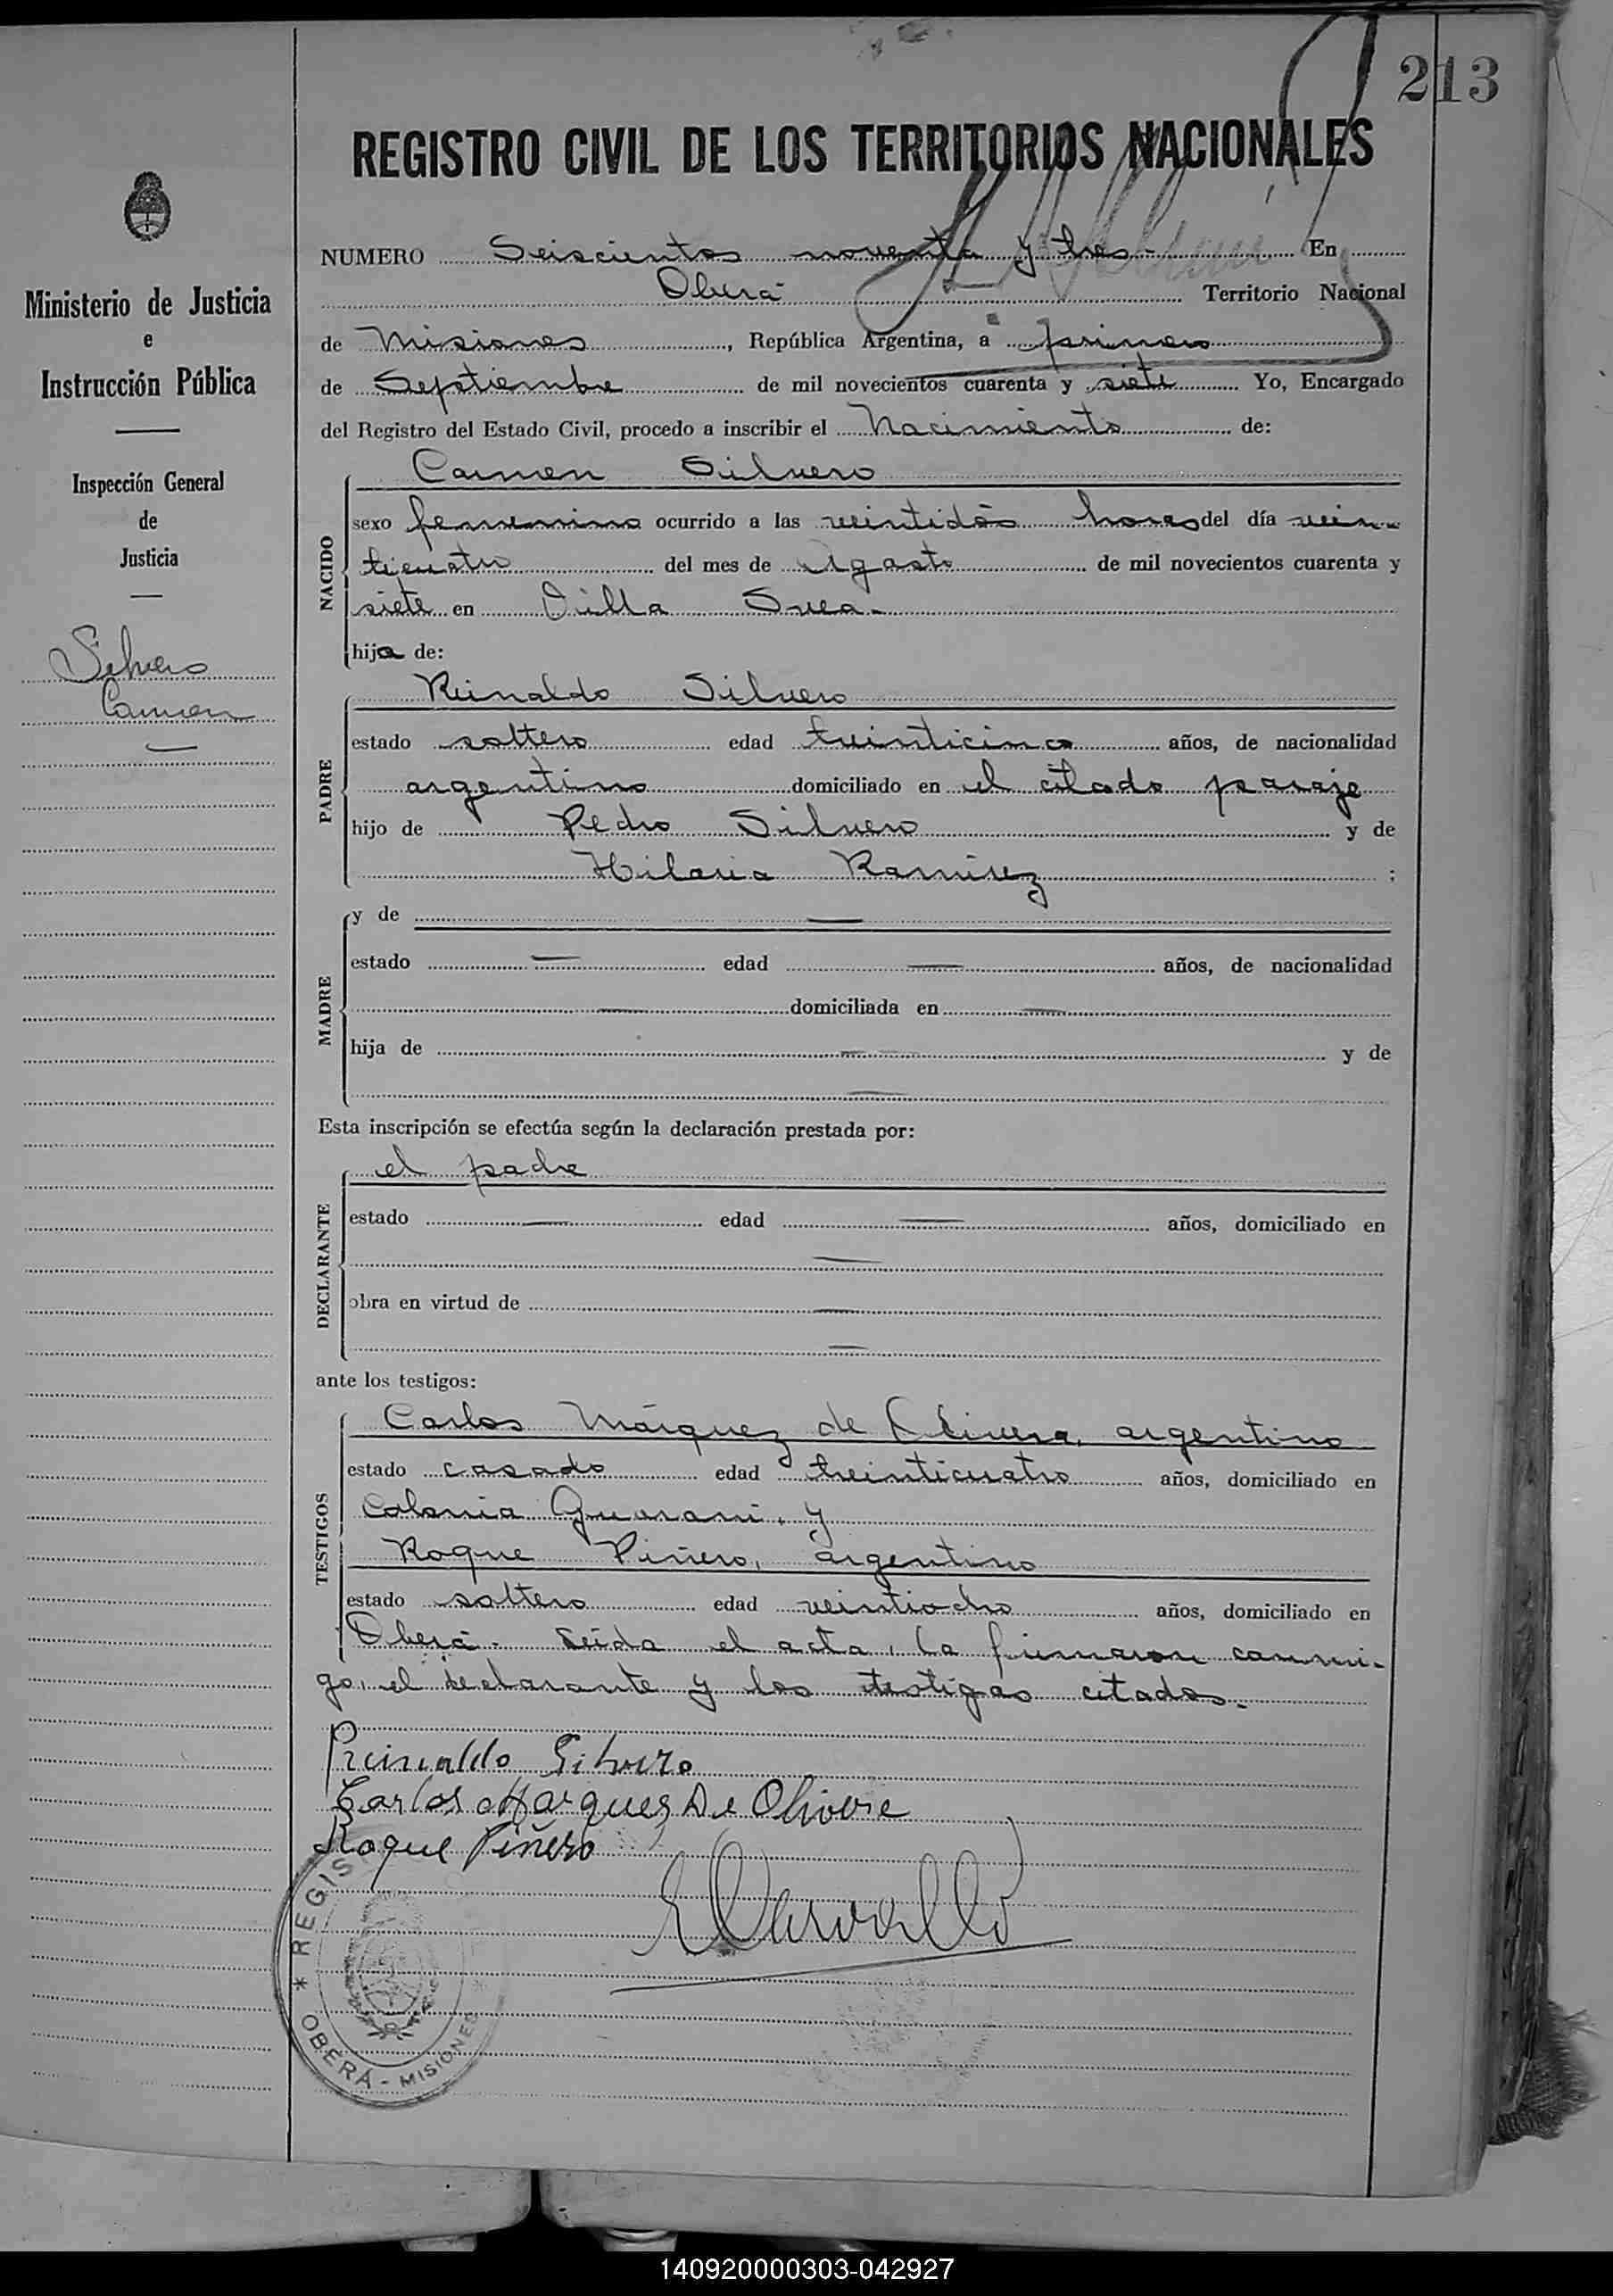 213
REGISTRO CIVIL DE LOS TERRITORIOS NACIONALES
Ministerio de Justicia
e
Instrucción Pública
Inspección General
de
Justicia
Silvero
Carmen
NUMERO Seiscientos noventa y tres - En
Oberá Territorio Nacional
de Misiones, República Argentina, a primero
de Septiembre de mil novecientos cuarenta y siete Yo, Encargado
del Registro del Estado Civil, procedo a inscribir el Nacimiento de:
NACIDO
Carmen Silvero
sexo femenino ocurrido a las veintidós horas del día vein-
ticuatro del mes de Agosto de mil novecientos cuarenta y
siete en Villa Svea.
hija de:
PADRE
Reinaldo Silvero
estado soltero edad treinticinco años, de nacionalidad
argentino domiciliado en el citado paraje
hijo de Pedro Silvero y de
Hilaria Ramírez ;
MADRE
y de —
estado — edad — años, de nacionalidad
— domiciliada en —
hija de — y de
—
Esta inscripción se efectúa según la declaración prestada por:
DECLARANTE
el padre
estado — edad — años, domiciliado en
—
obra en virtud de —
—
ante los testigos:
TESTIGOS
Carlos Márquez de Olivera, argentino
estado casado edad treinticuatro años, domiciliado en
Colonia Guaraní, y
Roque Piñero, argentino
estado soltero edad veintiocho años, domiciliado en
Oberá. Leída el acta, la firmaron conmi-
go, el declarante y los testigos citados.
Reinaldo Silvero
Carlos Marques De Olivera
Roque Piñero
* REGIS
OBERÁ - MISIONES
140920000303-042927